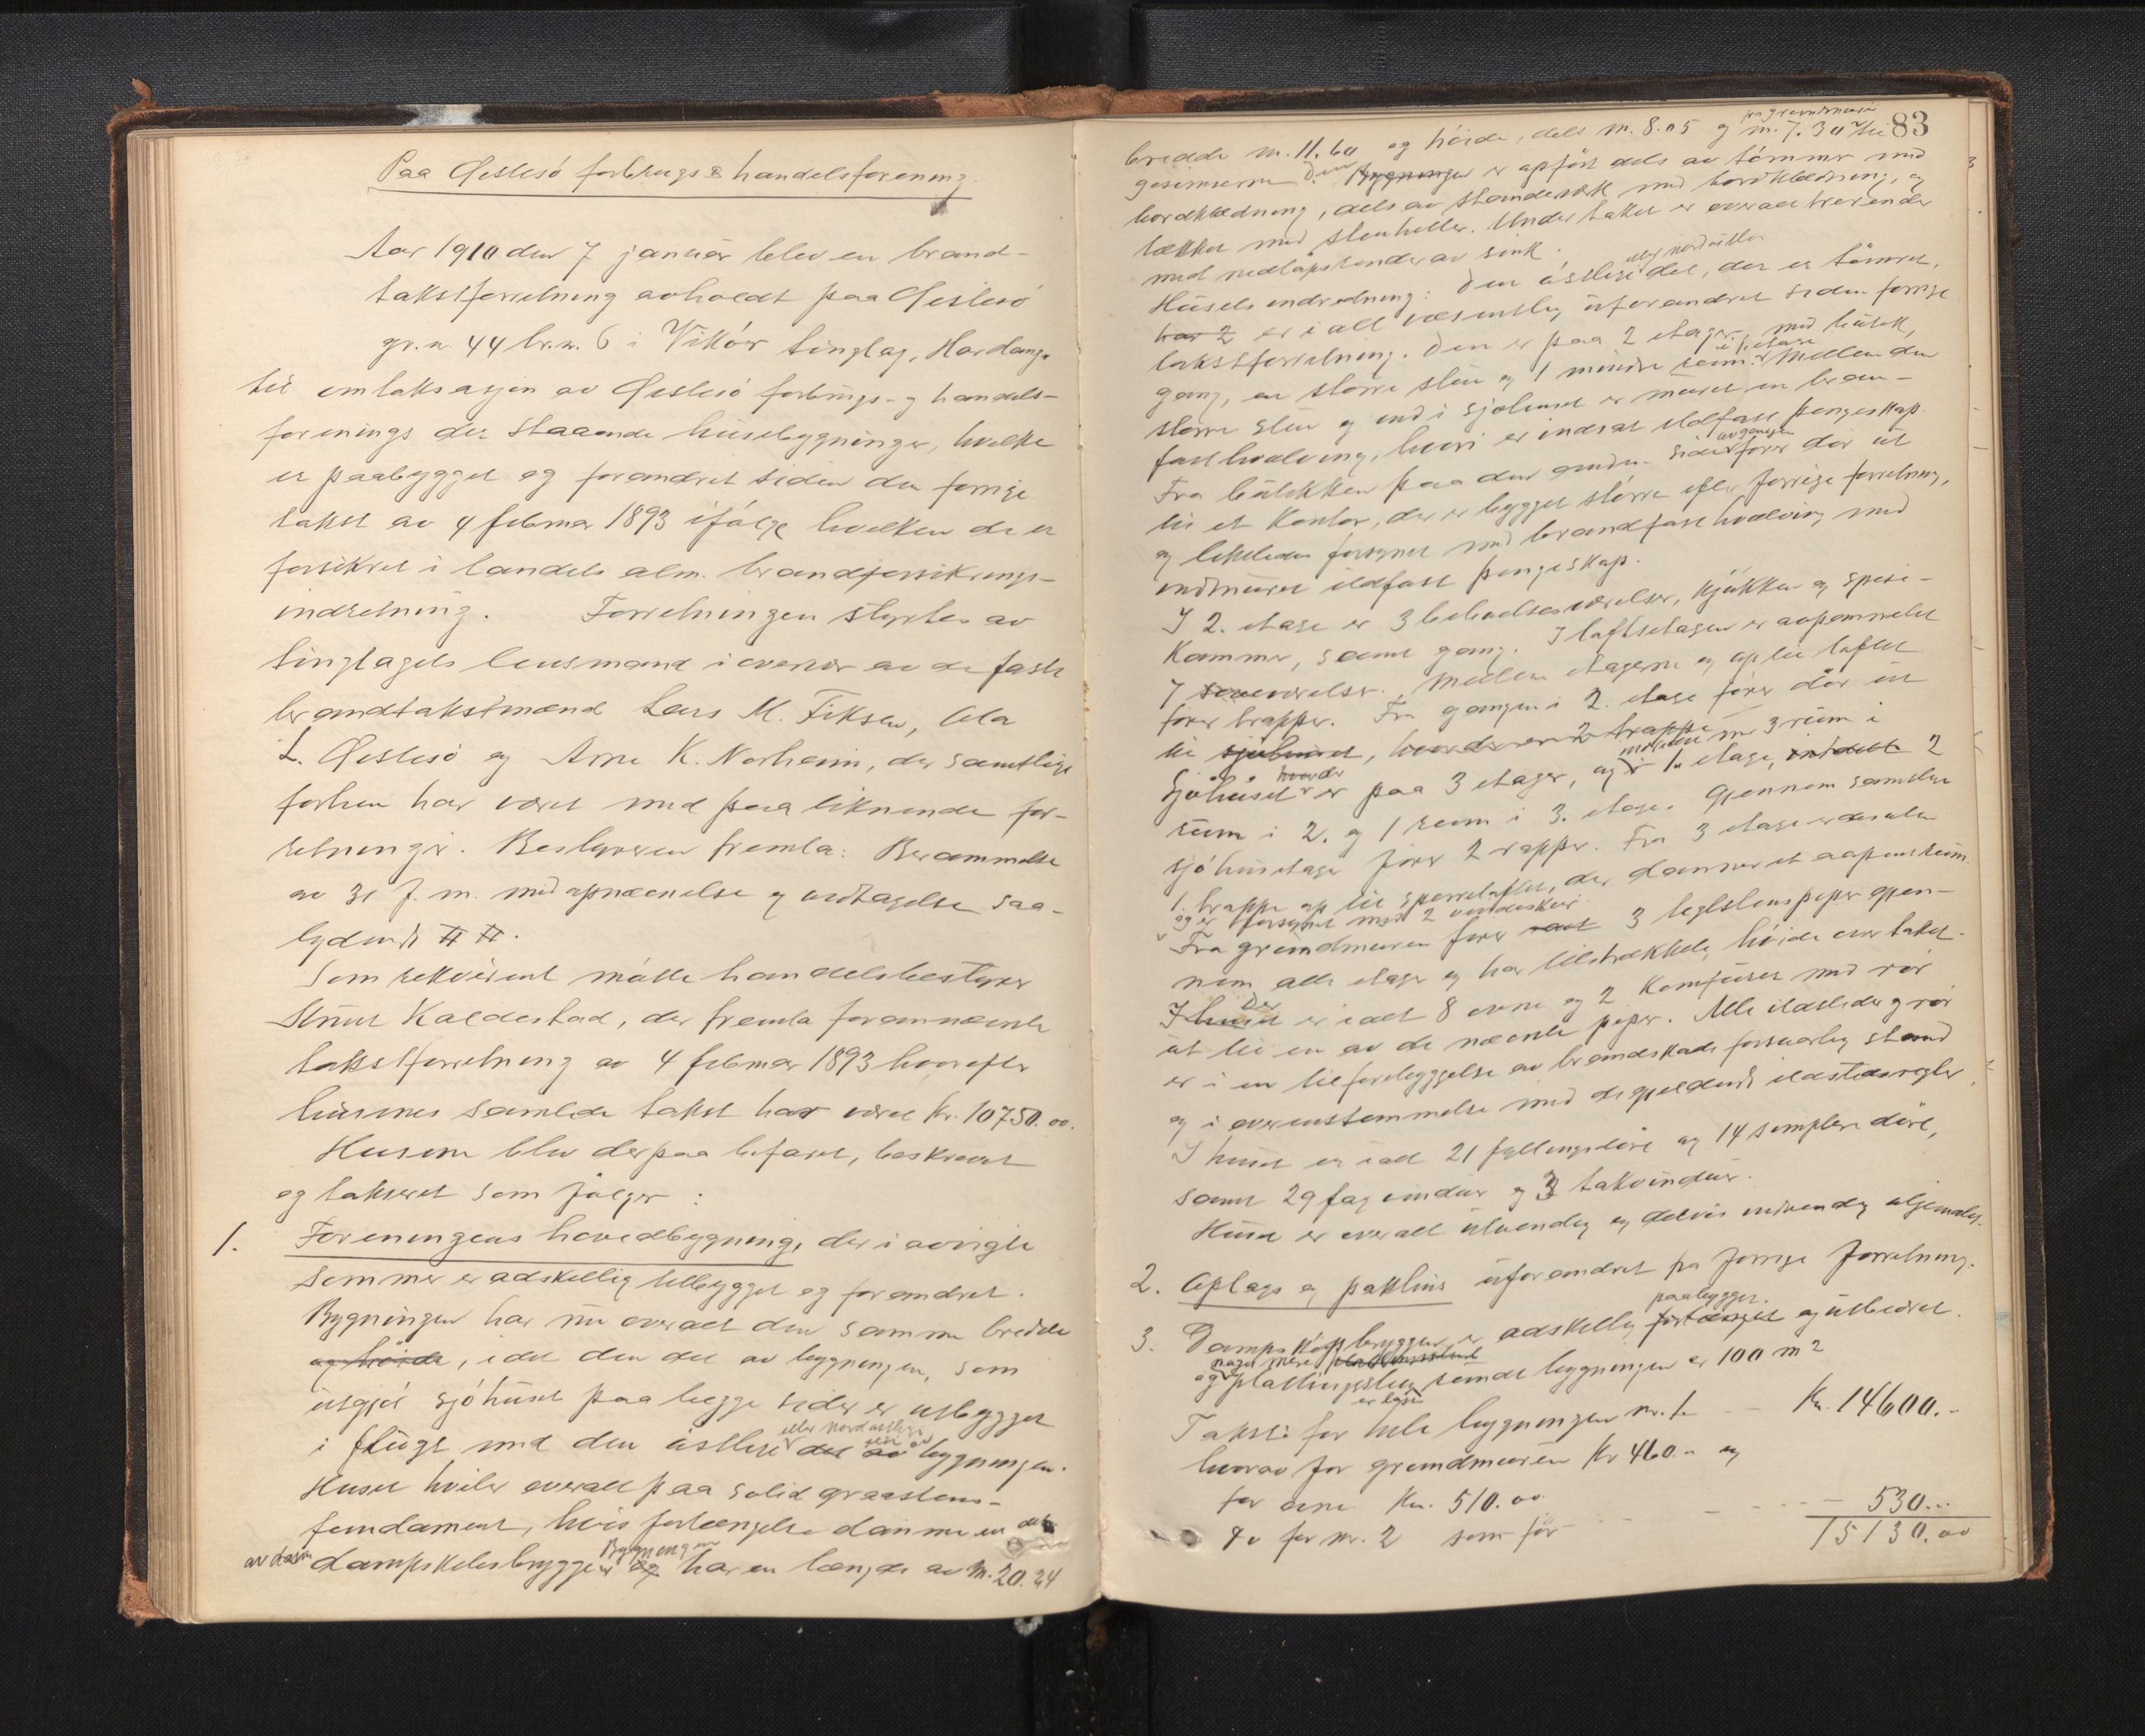 Paa Østesö forbrugs & handelsforening
Aar 1910 den 7 januar blev en brand-
takstforretning avholdt paa Østesö
gr.n. 44 br.n. 6 i Vikör tinglag, Hardanger
til omtaksasjon av Østesö forbrugs- og handels-
forenings der staaende husebygninger, hvilke
er paabygget og forandret siden den forrige
takst av 4 februar 1893 ifölge hvilken de er
forsikret i landets alm. brandforsikrings-
indretning. Forretningen styrtes av
tinglagets lensmand i overvær av de faste
brandtakstmænd Lars M. Fiksen, Ola
L. Østesö og Arne K. Norheim, der samtlige
forhen har været med paa liknende for-
retninger. Bestyreren fremla: Berammelse
av 31 f. m. med opnævnelse og vedtagelse saa-
lydende # #.
Som rekvirent mötte handelsbestyrer
Knut Kaldestad, der fremla forannævnte
takstforretning av 4 februar 1893 hvorefter
husenes samlede takst har været kr. 10750.00.
Husene blev derpaa befaret, beskrevet
og taksert som fölger:
1. Foreningens hovedbygning, der i avvigte
sommer er adskillig tilbygget og forandret.
Bygningen har nu overalt den samme bredde
og höide, idet den del av bygningen, som
utgjör sjöhuset paa begge sider er utbygget
eller nordöstlige
i flugt med den östlige del av bygningen.
Huset hviler overalt paa solid graastens-
fundament, hvis forlængelse danner en del
Bygningen
av den dampskibsbryggen og har en længde av m. 20.24
fra grundmuren
83
bredde m. 11.60 og höide, dels m. 8.05 og m. 7.30 til
gesimserne. Den Bygningen er opfört dels av tömmer med
bordklædning, dels av standerverk med bordklædning, og
tækket med stenheller. Under taket er overalt trærender
med nedlöpsrender av sink.
Husets indredning: Den östlige del, der er tömret,
har 2 er i alt væsentlig uforandret siden forrige
takstforretning. Den er paa 2 etager, med butik,
i 1. etage
gang, en större stue og 1 mindre rum. Mellem den
större stue og ind i sjöhuset er muret en brand-
fast hvælving, hvori er indsat ildfast pengeskap.
av gangen
Fra butikken paa den anden side förer dör ut
til et kontor, der er bygget större efter forrige forretning,
og likeledes forsynet med brandfast hvælving med
indmuret ildfast pengeskap.
I 2. etage er 3 beboelsesværelser, kjökken og spise-
kammer, samt gang. I loftsetagen er avpanelet
7 soveværelser. Mellem etagerne og op til loftet
förer trapper. Fra gangen i 2. etage förer dör ut
til sjöhuset, hvor der er 2 trapper
hvor der
Sjöhuset er paa 3 etager, og 3 rum i 1. etage, 2
rum i 2. og 1 rum i 3. etage. Gjennem samtlige
sjöhusetager förer trapper. Fra 3 etage er desuten
1. trappe op til sperreloftet, der danner et aapent rum.
og er forsynet med 2 vinduskur
Fra grundmuren förer 3 teglstenspiper gjen-
nem alle etager og har tilstrækkelig höide over taket.
Der
I huset er i alt 8 ovne og 2 komfurer med rör
ut til en av de nævnte piper. Alle ildsteder og rör
er i en til forebyggelse av brandskade forsvarlig stand
og i overensstemmelse med de gjældende ildstedsregler.
I huset er i alt 21 fyllingsdöre og 14 simplere döre,
samt 29 fag vinduer og 3 takvinduer.
Huset er overalt utvendig og delvis indvendig oljemalet.
2. Oplags og pakhus uforandret fra forrige forretning.
paabygget
3. Dampskipsbryggen er adskillig forlænget og utbedret.
noget mere
og plattingsstuen rundt bygningen er 100 m2
Takst: for hele bygningen nr. 1 -- Kr. 14600.-
hvorav for grundmuren kr 460.- og
for ovne Kr. 510.00
4o for nr. 2 som för - - - - - 530...
15130.00